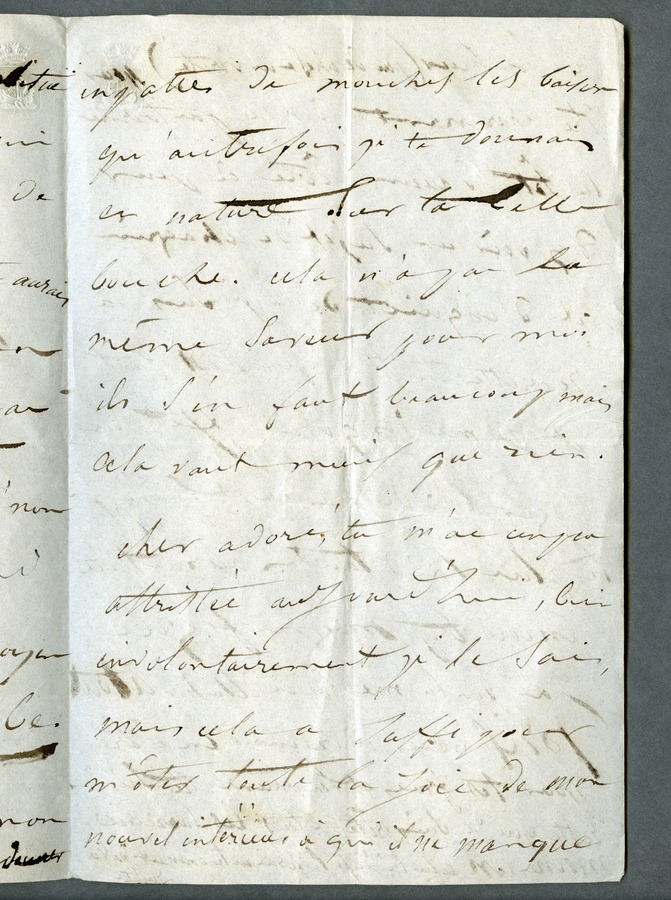 en pattes de mouches les baisers
qu'autrefois je te donnais
en nature sur ta belle
bouche. cela n'a pas la
même saveur pour moi
il s'en faut beaucoup mais
cela vaut mieux que rien.
cher adoré, tu m'as un peu
attristée aujourd'hui, bien
involontairement je le sais,
mais cela a suffi pour
m'ôter toute la joie de mon
nouvel intérieur à qui il ne manque
de
aurais
ce.
non
donner